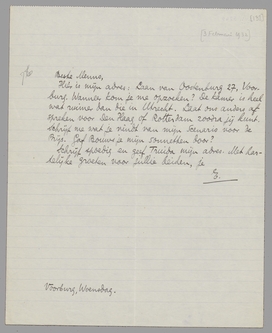 Beste Menno,
Hier is mijn adres: Laan van Oostenburg 27, Voor-
burg. Wanneer kom je me opzoeken? De kamer is heel
wat ruimer dan die in Utrecht. Laat ons anders af-
spreken voor Den Haag of Rotterdam zoodra jij kunt.
Schrijf me wat je vindt van mijn scenario voor de
Brijs. Gaf Bouws je mijn sonnetten door?
Schrijf spoedig en geef Truida mijn adres. Met har-
telijke groeten voor jullie beiden, je
E.
Voorburg, Woensdag.